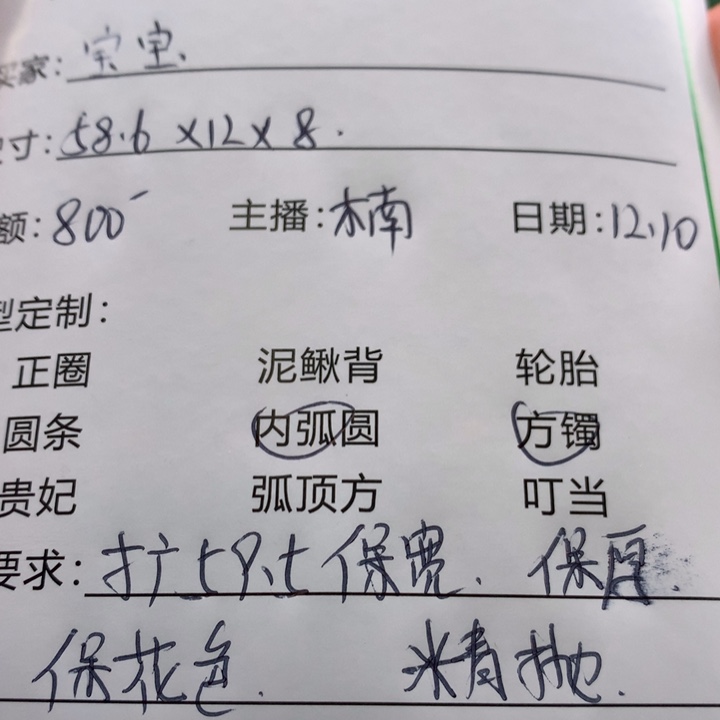 买家: 宝宝.
寸: 58.6 ×12× 8.
额: 800- 主播: 木南 日期: 12.10
型定制:
正圈 泥鳅背 轮胎
圆条 内弧圆 方镯
贵妃 弧顶方 叮当
要求: 扩59.5 保宽. 保厚.
保花色. 精抛.